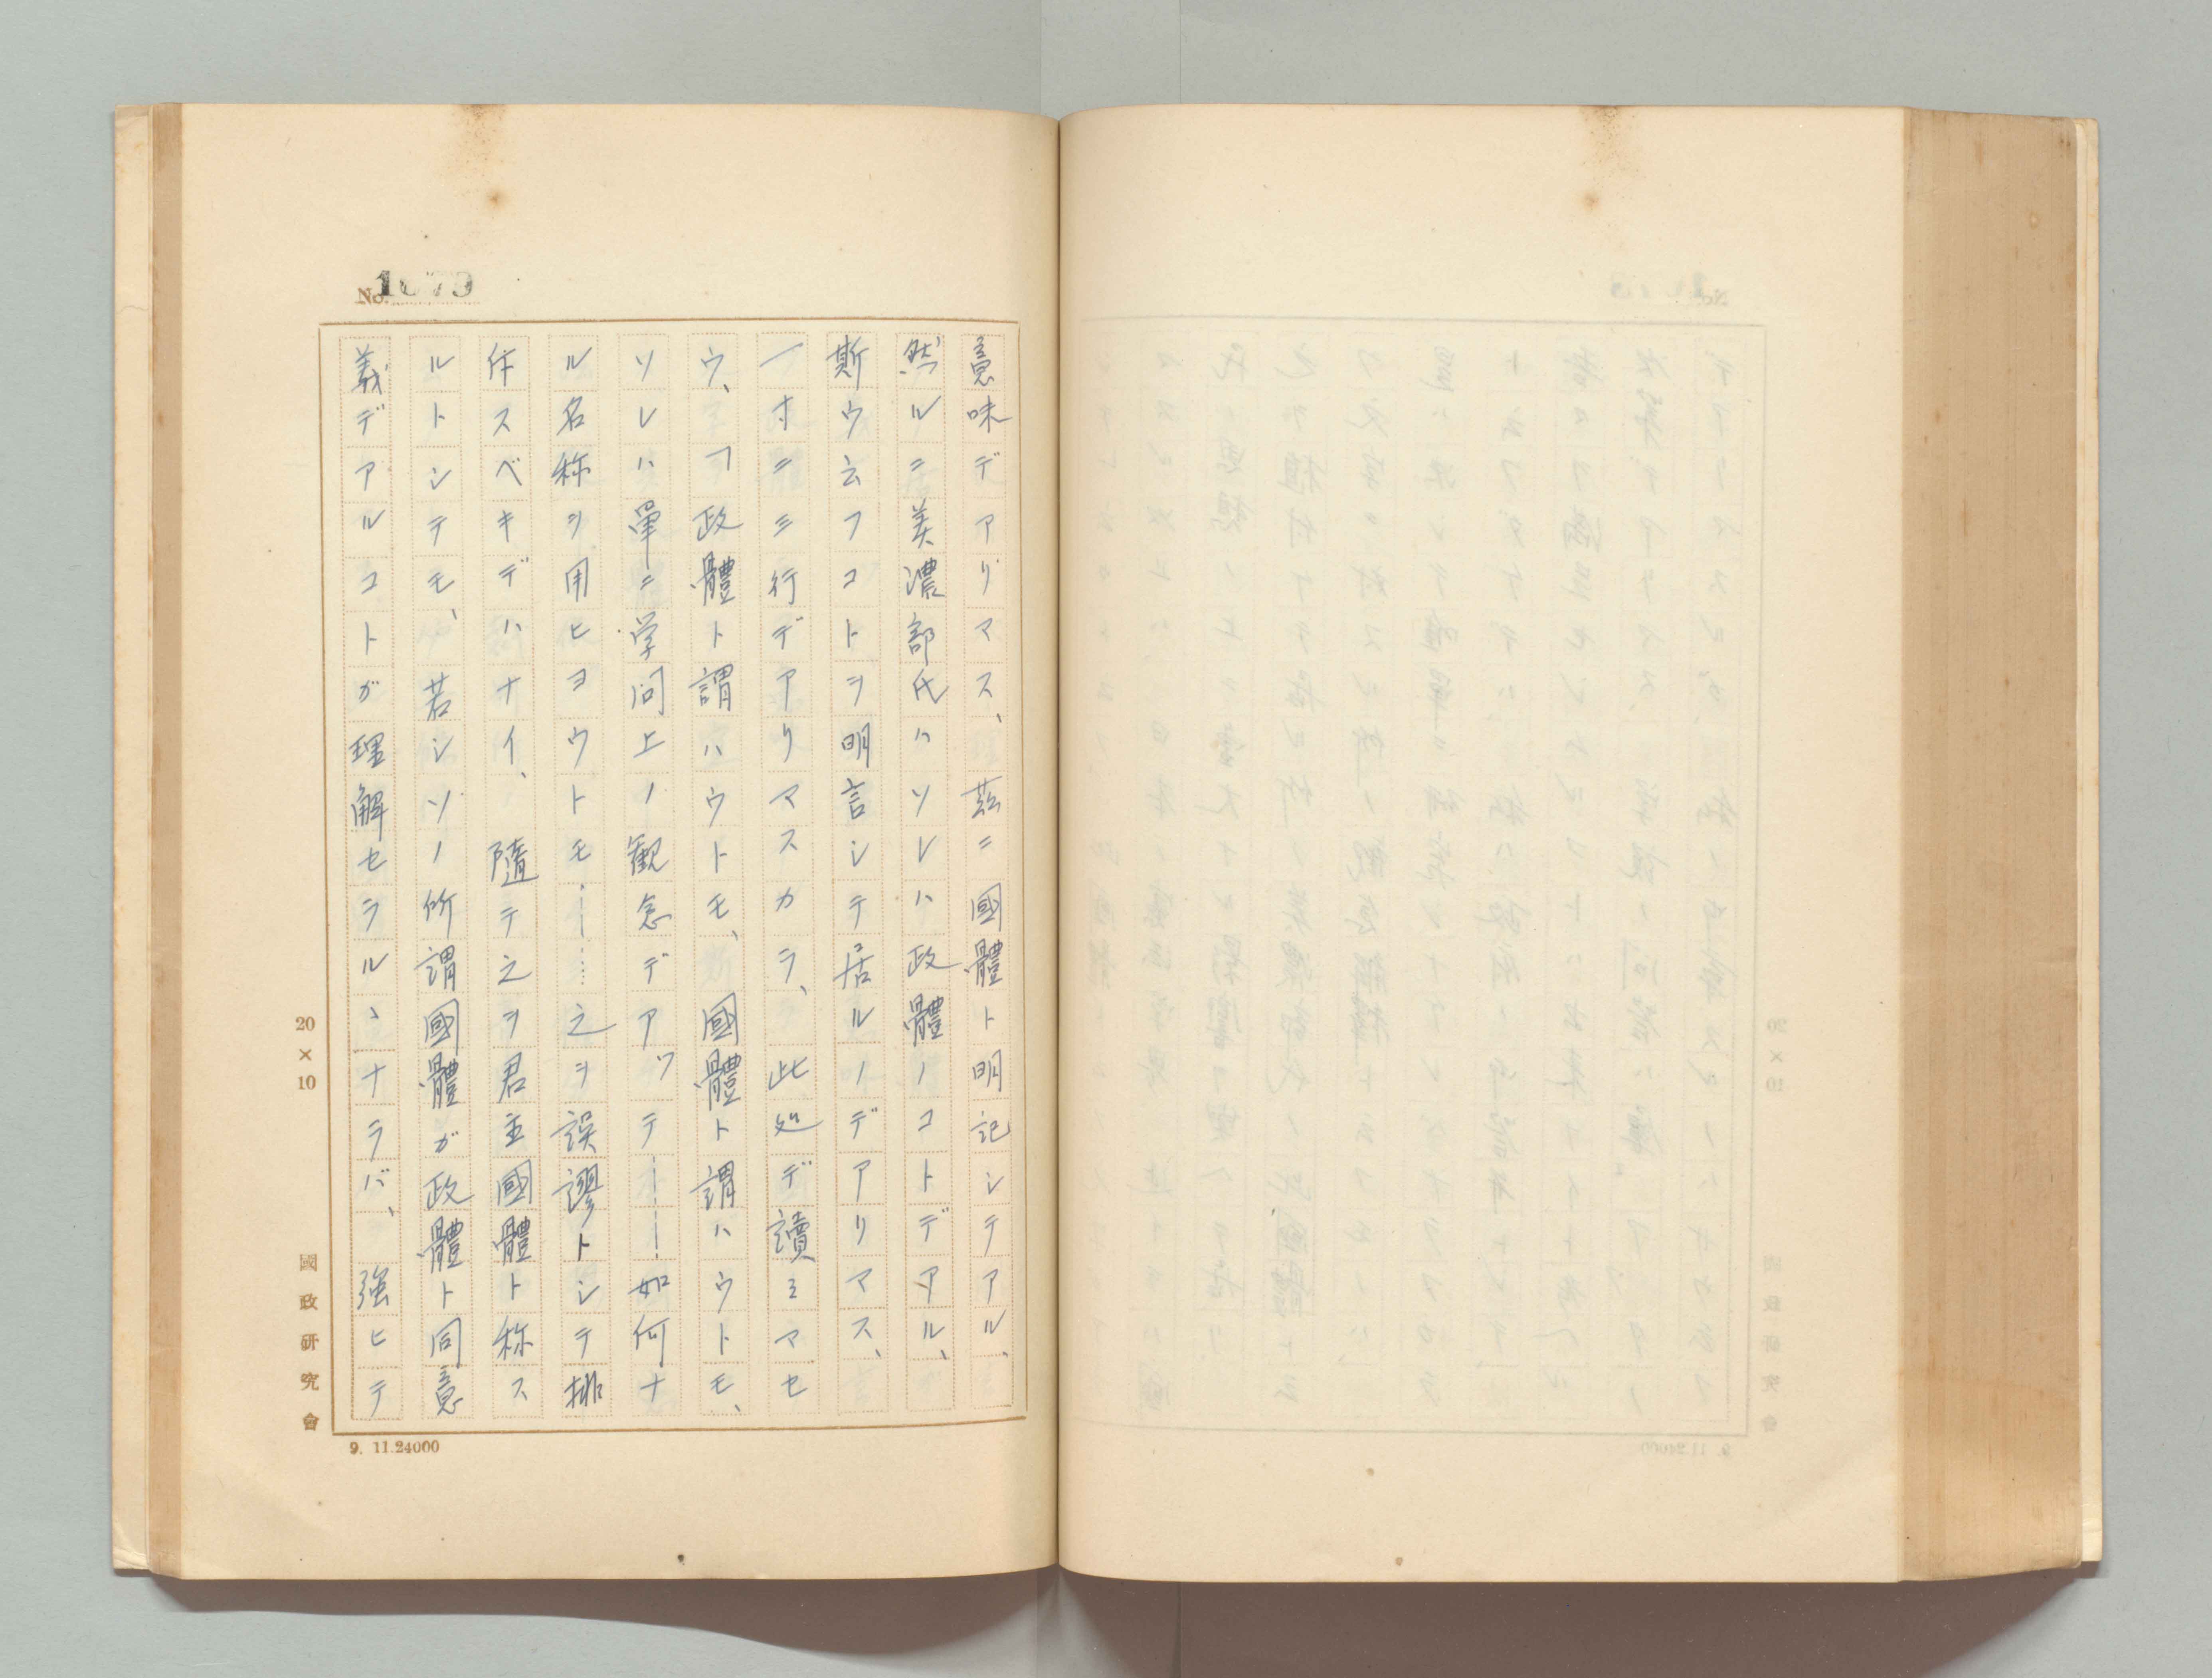 No. 1079
意味デアリマス、茲ニ國體ト明記シテアル、
然ルニ美濃部氏ハソレハ政體ノコトデアル、
斯ウ云フコトヲ明言シテ居ルノデアリマス、
一寸ニ三行デアリマスカラ、此処デ讀ミマセ
ウ、「政體ト謂ハウトモ、國體ト謂ハウトモ、
ソレハ單ニ学問上ノ観念デアツテ……如何ナ
ル名称ヲ用ヒヨウトモ……之ヲ誤謬トシテ排
斥スベキデハナイ、隨テ之ヲ君主國體ト称ス
ルトシテモ、若シソノ所謂國體ガ政體ト同意
義デアルコトガ理解セラルヽナラバ、強ヒテ
20×10
國政研究會
9. 11.24000